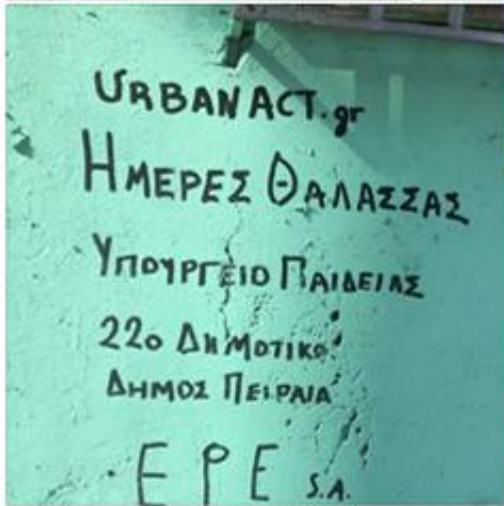 URBANACT.gr
ΗΜΕΡΕΣ ΘΑΛΑΣΣΑΣ
ΥΠΟΥΡΓΕΙΟ ΠΑΙΔΕΙΑΣ
22ο ΔΗΜΟΤΙΚΟ
ΔΗΜΟΣ ΠΕΙΡΑΙΑ
EPE S.A.